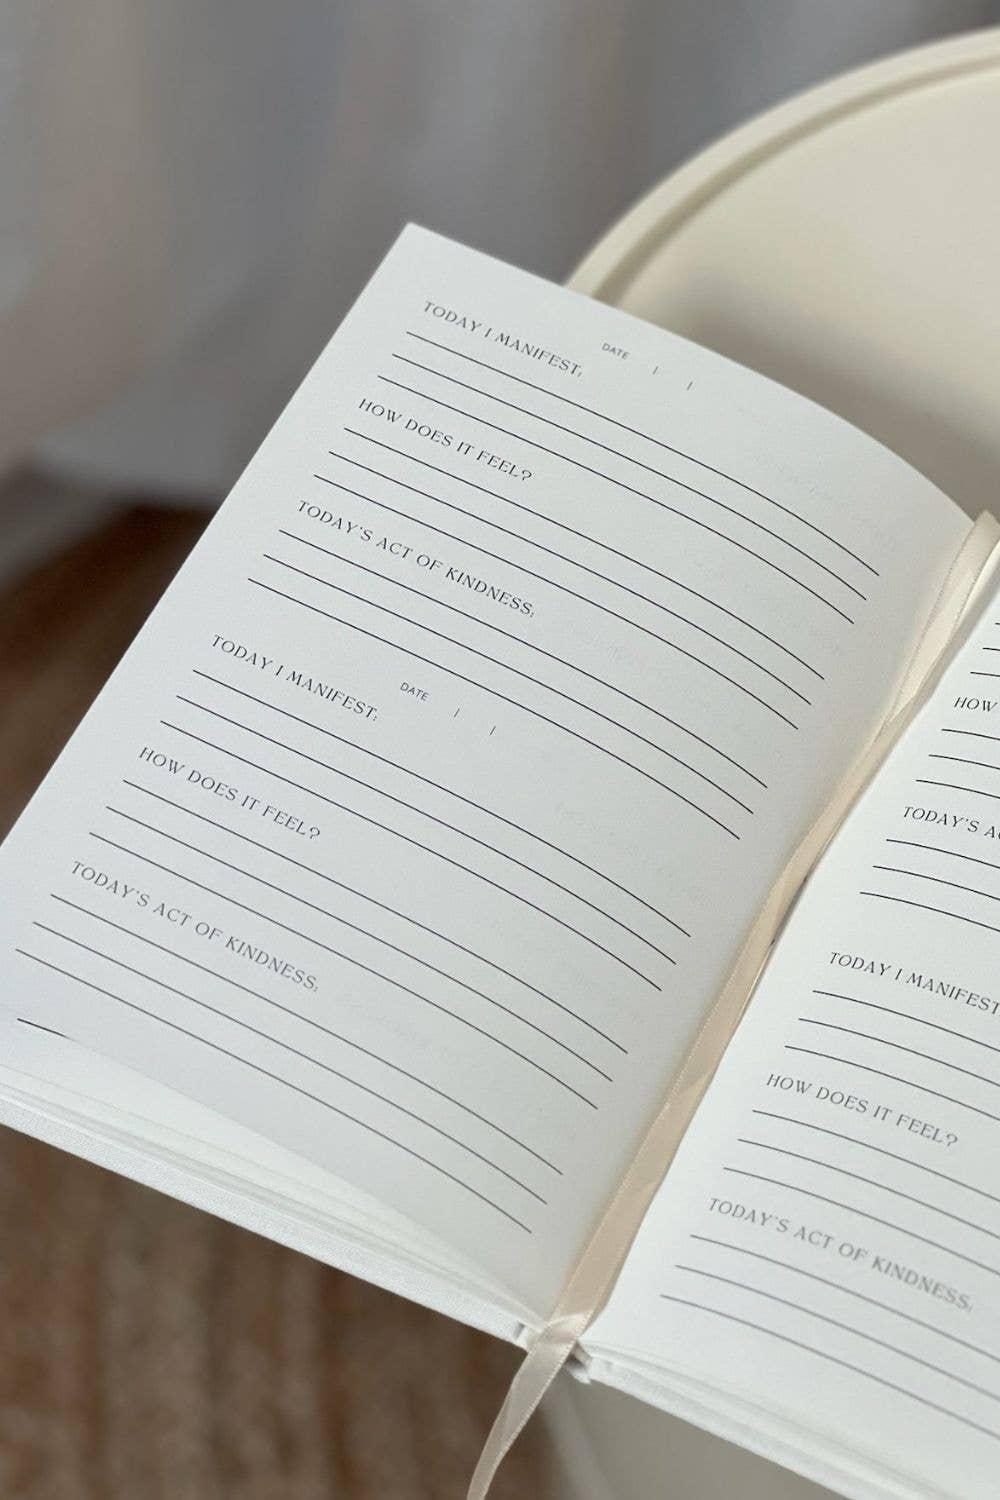 TODAY I MANIFEST:
DATE / /
HOW DOES IT FEEL?
TODAY'S ACT OF KINDNESS:
TODAY I MANIFEST:
DATE / /
HOW DOES IT FEEL?
TODAY'S ACT OF KINDNESS:
HOW
TODAY'S
TODAY I MANIFEST
HOW DOES IT FEEL?
TODAY'S ACT OF KINDNESS: